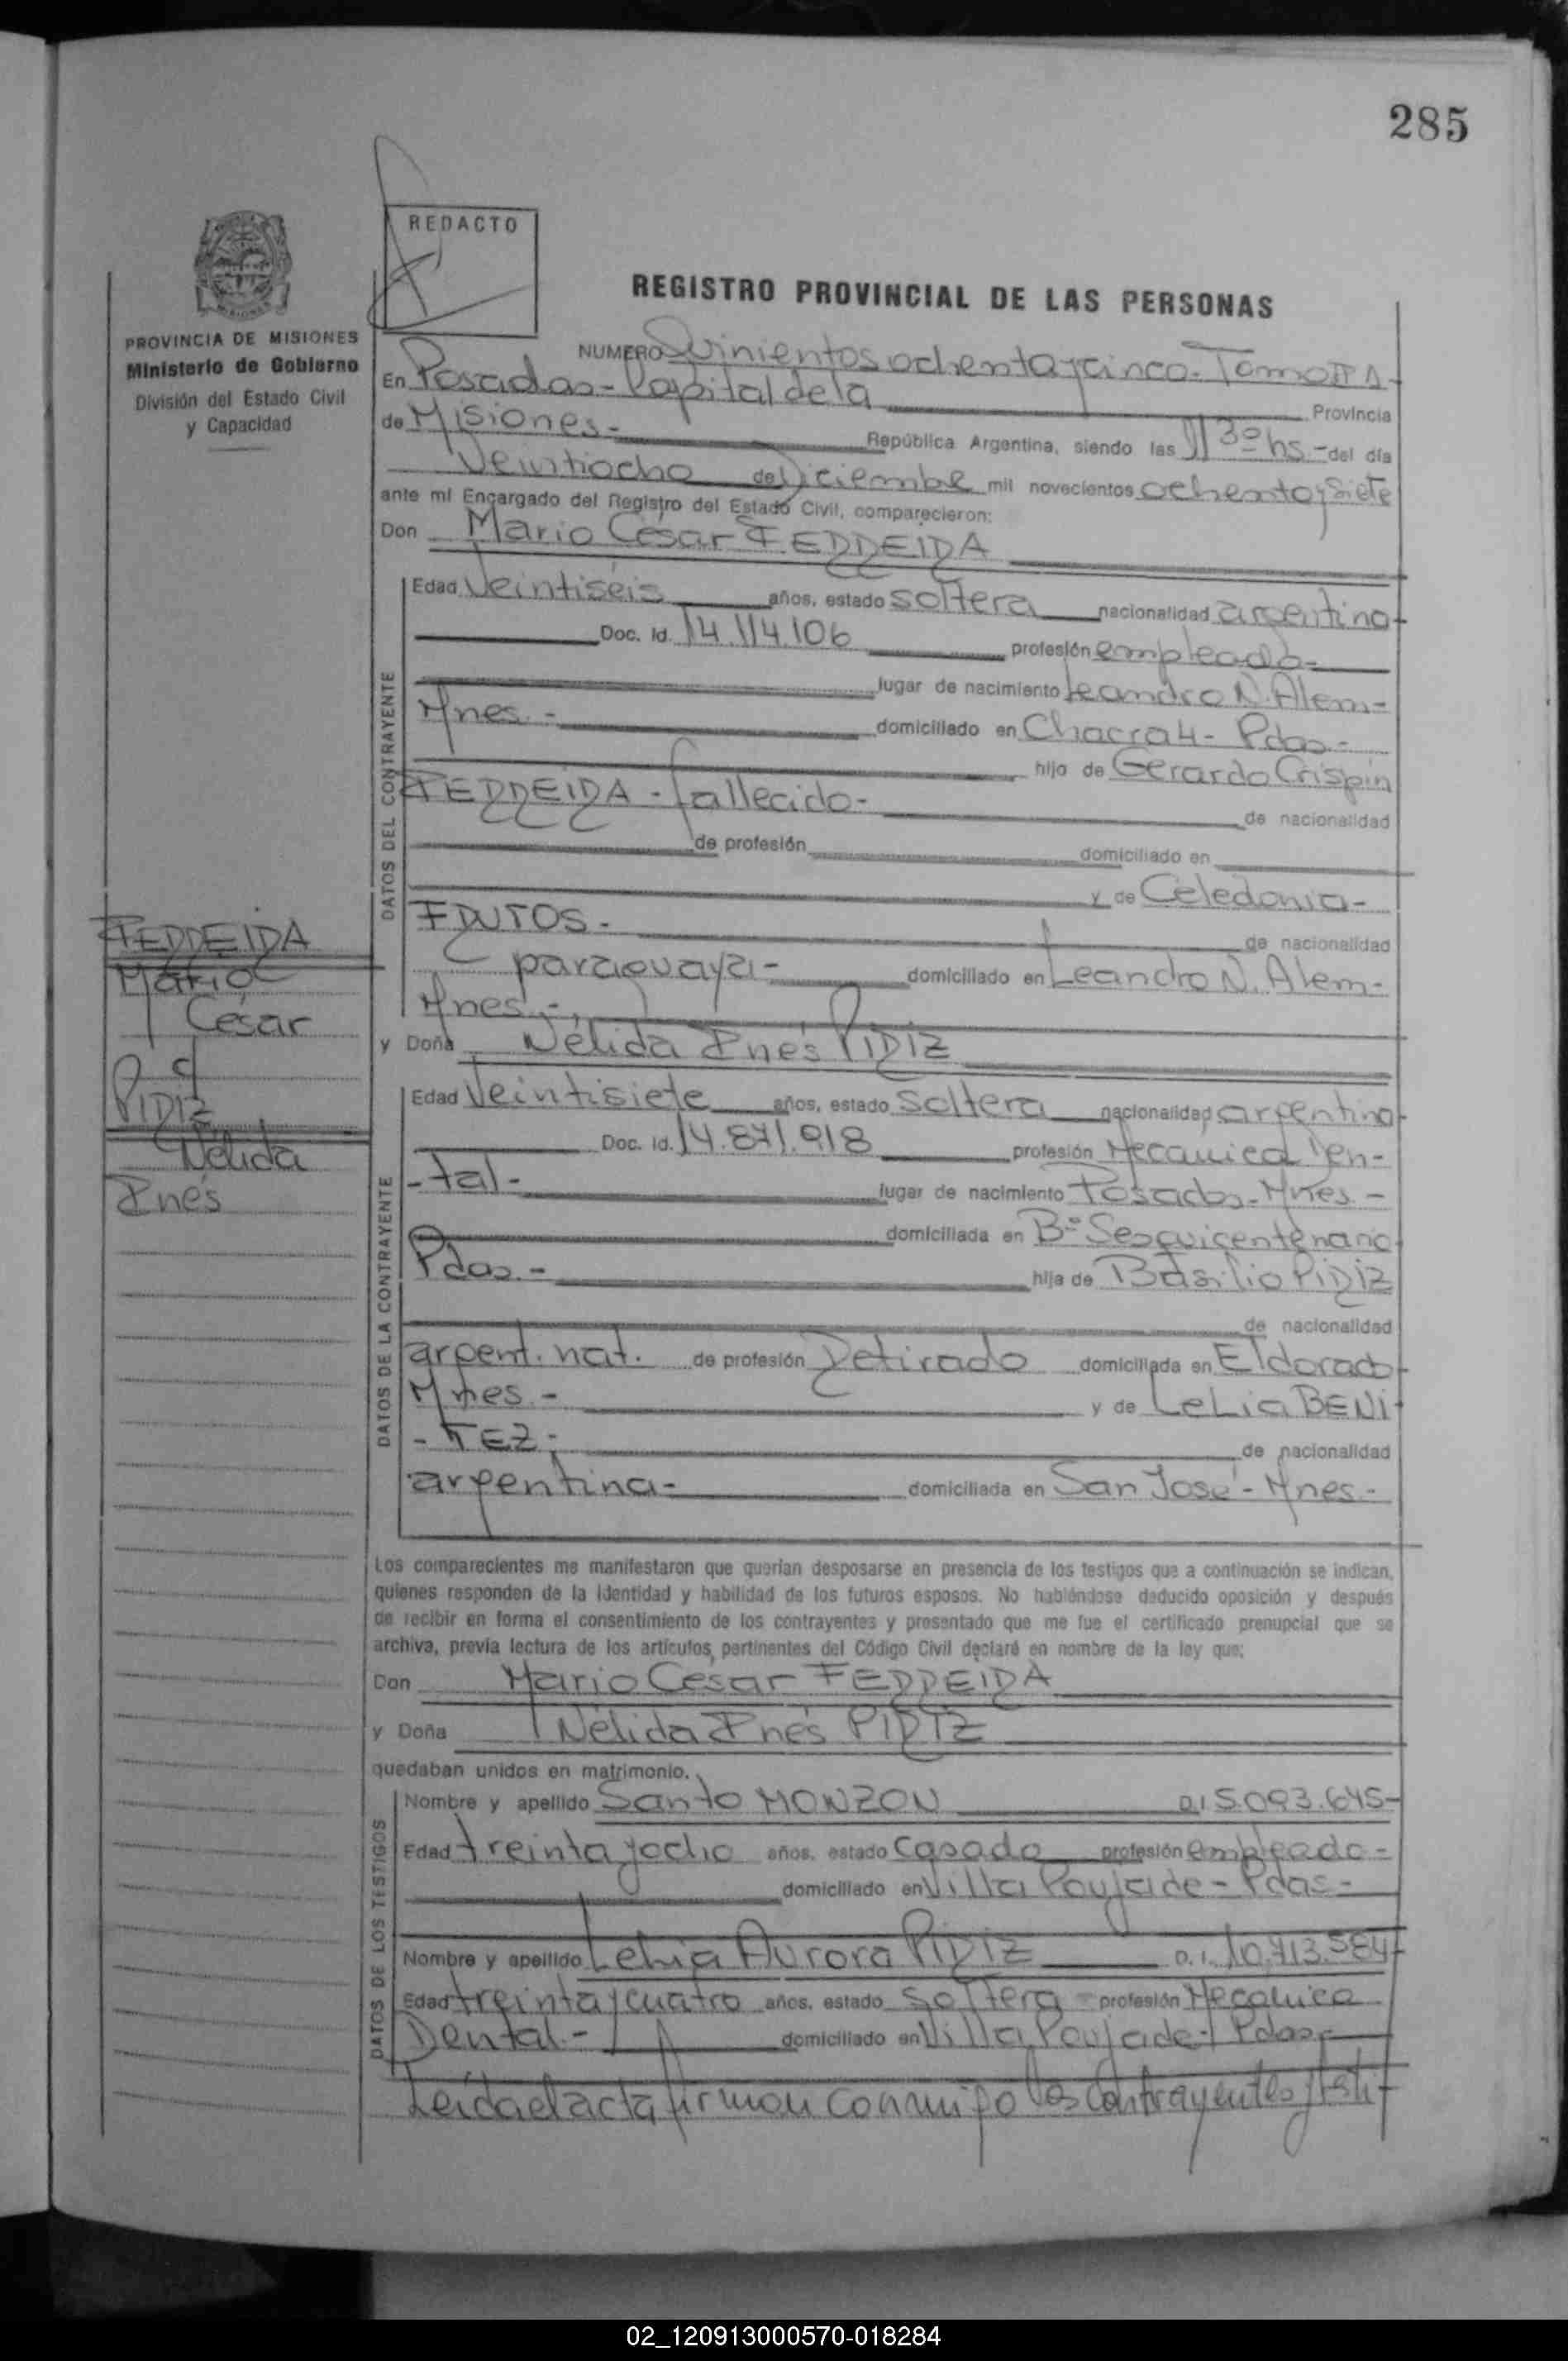 285
REDACTO
REGISTRO PROVINCIAL DE LAS PERSONAS
PROVINCIA DE MISIONES
Ministerio de Gobierno
División del Estado Civil
y Capacidad
NUMERO Quinientos ochenta y cinco - Tomo II A-
En Posadas - Capital de la Provincia
de Misiones - República Argentina, siendo las 11 30 hs - del día
Veintiocho de Diciembre mil novecientos ochenta y siete
ante mí Encargado del Registro del Estado Civil, comparecieron:
Don Mario César FERREIRA
DATOS DEL CONTRAYENTE
Edad Veintiseis años, estado soltera nacionalidad argentina
Doc. Id. 14.114.106 profesión empleado-
lugar de nacimiento Leandro N. Alem-
Mnes.- domiciliado en Chacra 4- Pdas-
hijo de Gerardo Crispin
FERREIRA - fallecido- de nacionalidad
de profesión domiciliado en
y de Celedonia-
FRUTOS - de nacionalidad
paraguaya- domiciliado en Leandro N. Alem-
Mnes.-
y Doña Nélida Inés PIRIZ
FERREIRA
Mario
César
PIRIZ
Nélida
Inés
DATOS DE LA CONTRAYENTE
Edad Veintisiete años, estado soltera nacionalidad argentina
Doc. Id. 14.871.918 profesión Mecánica Den-
-tal- lugar de nacimiento Posadas-Mnes.-
domiciliada en Bº Sesquicentenario
Pdas.- hija de Basilio PIRIZ
de nacionalidad
argent. nat. de profesión Retirado domiciliada en Eldorado-
Mnes.- y de LeLia BENI-
-TEZ- de nacionalidad
argentina- domiciliada en San José - Mnes-
Los comparecientes me manifestaron que querían desposarse en presencia de los testigos que a continuación se indican,
quienes responden de la identidad y habilidad de los futuros esposos. No habiéndose deducido oposición y después
de recibir en forma el consentimiento de los contrayentes y presentado que me fue el certificado prenupcial que se
archiva, previa lectura de los artículos pertinentes del Código Civil declaré en nombre de la ley que:
Don Mario Cesar FERREIRA
y Doña Nélida Inés PIRIZ
quedaban unidos en matrimonio.
DATOS DE LOS TESTIGOS
Nombre y apellido Santo MONZON D.I. 5.093.645-
Edad treinta y ocho años, estado casado profesión empleado-
domiciliado en Villa Poujade - Pdas-
Nombre y apellido Lelia Aurora PIRIZ D.I. 10.713.584-
Edad treinta y cuatro años, estado soltera profesión Mecanica
Dental.- domiciliado en Villa Poujade - Pdas-
Leida el acta firman conmigo los Contrayentes y testi-
02_120913000570-018284